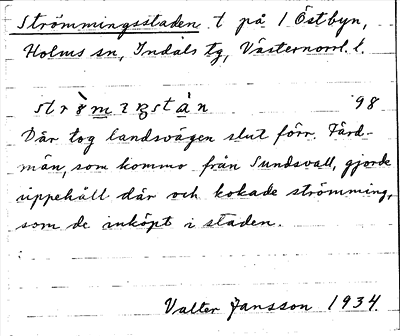 Strömmingsstaden t på 1 Östbyn,
Holms sn, Indals tg, Västernorrl. l.
98
Där tog landsvägen slut förr. Färd-
män, som kommo från Sundsvall, gjorde
uppehåll där och kokade strömming,
som de inköpt i staden.
Valter Jansson 1934.